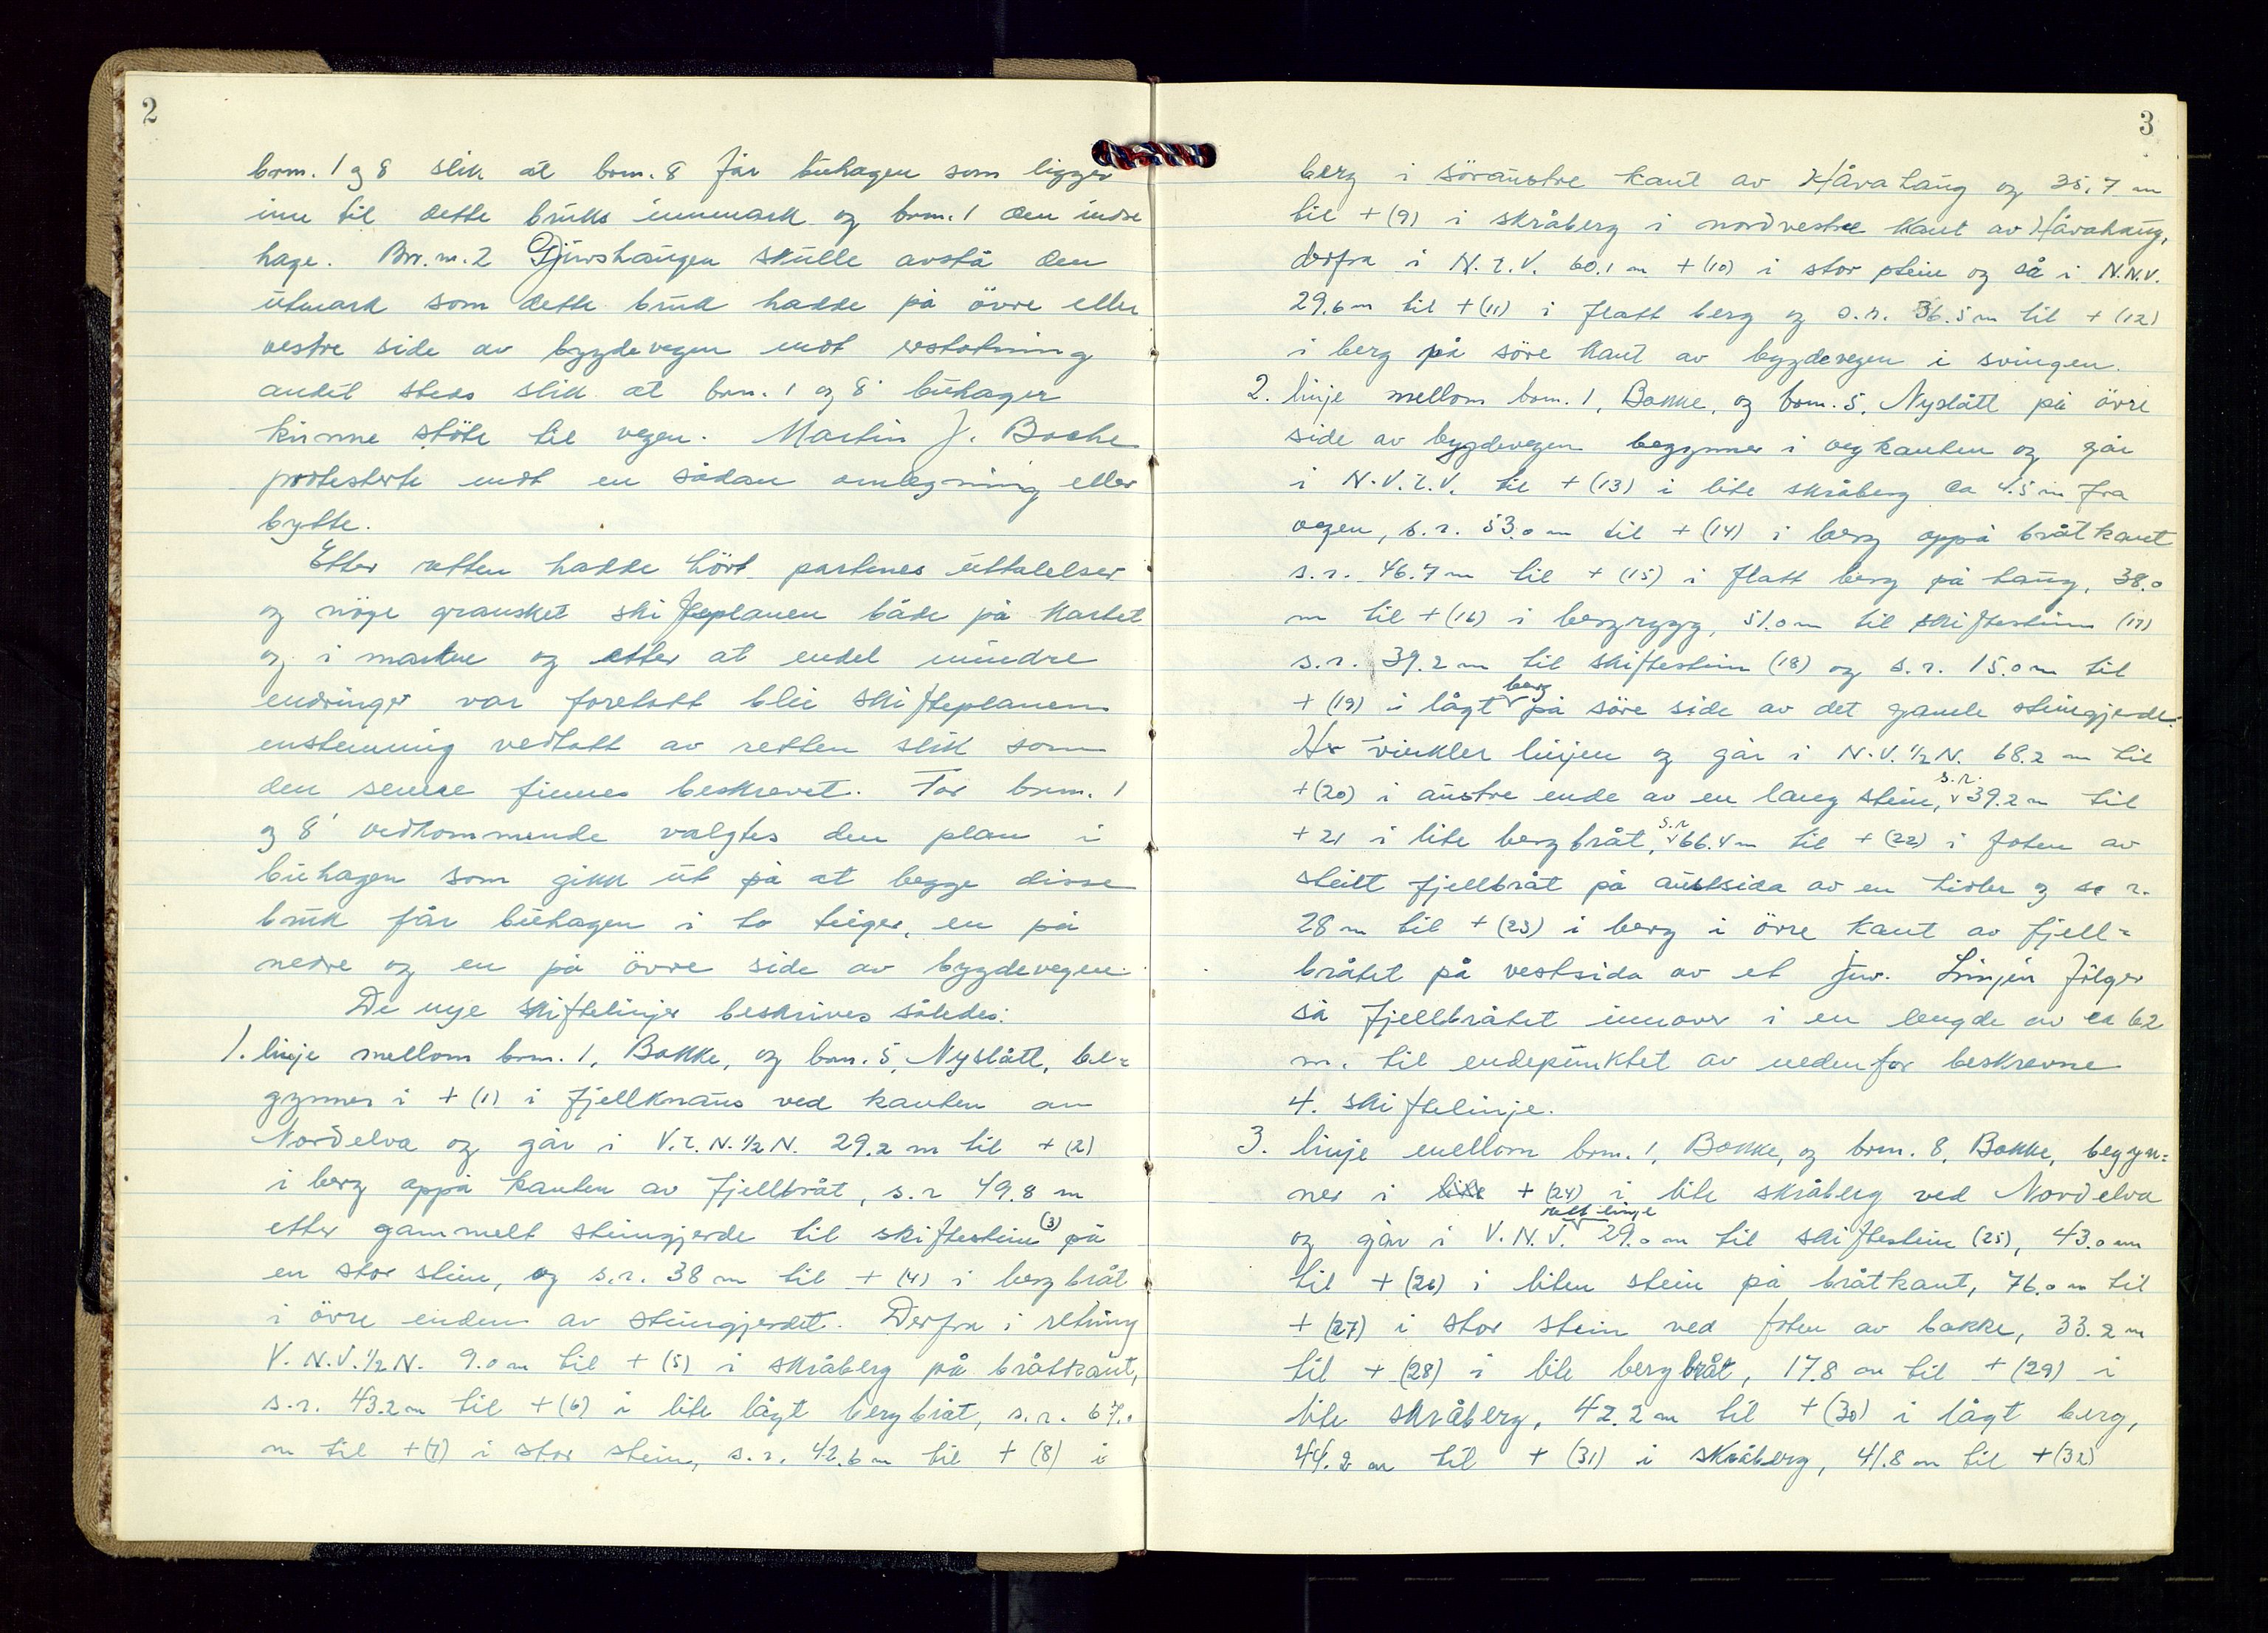 2
brm. 1 og 8 slik at brm. 8 får buhagen som ligger
inn til dette bruks innmark og brm. 1 den indre
hage. Br.m. 2 Djuvshaugen skulle avstå den
utmark som dette bruk hadde på övre eller
vestre side av bygdevegen mot erstatning
andet steds slik at brm. 1 og 8 buhager
kunne stöte til vegen. Martin J. Bakke
protesterte mot en sådan omlegning eller
bytte.
Etter retten hadde hört partenes uttalelser
og nöye gransket skifteplanen både på kartet
og i marken og etter at endel mindre
endringer var foretatt blei skifteplanen
enstemmig vedtatt av retten slik som
den senere finnes beskrevet. For brm. 1
og 8 vedkommende valgtes den plan i
buhagen som gikk ut på at begge disse
bruk får buhagen i to teiger, en på
nedre og en på övre side av bygdevegen.
De nye skiftelinjer beskrives således:
1. linje mellom brm. 1, Bakke, og brm. 5, Nyslått, be=
gynner i + (1) i fjellknaus ved kanten av
Nordelva og går i V.t.N.½N. 29.2 m til + (2)
i berg oppå kanten av fjellbråt, s.r 49.8 m
etter gammelt steingjerde til skiftestein (3) på
en stor stein, og s.r. 38 m til + (4) i bergbråt
i övre enden av steingjerdet. Derfra i retning
V.N.V.½N. 9.0 m til + (5) i skråberg på bråtkant,
s.r. 43.2 m til + (6) i lite lågt bergbråt, s.r. 67.0
m til + (7) i stor stein, s.r. 42.6 m til + (8) i
3
berg i söraustre kant av Håvahaug og 35.7 m
til + (9) i skråberg i nordvestre kant av Håvahaug,
derfra i N.t.V. 60.1 m + (10) i stor stein og så i N.N.V.
29.6 m til + (11) i flatt berg og s.r. 36.5 m til + (12)
i berg på söre kant av bygdevegen i svingen.
2. linje mellom brm. 1, Bakke, og brm. 5, Nyslått på övre
side av bygdevegen begynner i vegkanten og går
i N.V.t.V. til + (13) i lite skråberg ca 4.5 m fra
vegen, s.r. 53.0 m til + (14) i berg oppå bråtkant
s.r. 46.7 m til + (15) i flatt berg på haug, 38.0
m til + (16) i bergrygg, 51.0 m til skiftestein (17)
s.r. 39.2 m til skiftestein (18) og s.r. 15.0 m til
+ (19) i lågt berg på söre side av det gamle steingjerde.
Her vinkler linjen og går i N.V.½N. 68.2 m til
+ (20) i austre ende av en lang stein, s.r. 39.2 m til
+ 21 i lite bergbråt, s.r 66.4 m til + (22) i foten av
steilt fjellbråt på austsida av en og s.r.
28 m til + (23) i berg i övre kant av fjell=
bråtet på vestsida av et juv. Linjen fölger
så fjellbråtet innover i en lengde av ca 62
m. til endepunktet av nedenfor beskrevne
4. skiftelinje.
3. linje mellom brm. 1, Bakke, og brm. 8, Bakke, begyn=
ner i lite + (24) i lite skråberg ved Nordelva
og går i V.N.V. rett linje 29.0 m til skiftestein (25), 43.0 m
til + (26) i liten stein på bråtkant, 76.0 m til
+ (27) i stor stein ved foten av bakke, 33.2 m
til + (28) i lite bergbråt, 17.8 m til + (29) i
lite skråberg, 42.2 m til + (30) i lågt berg,
44.2 m til + (31) i skråberg, 41.8 m til + (32)